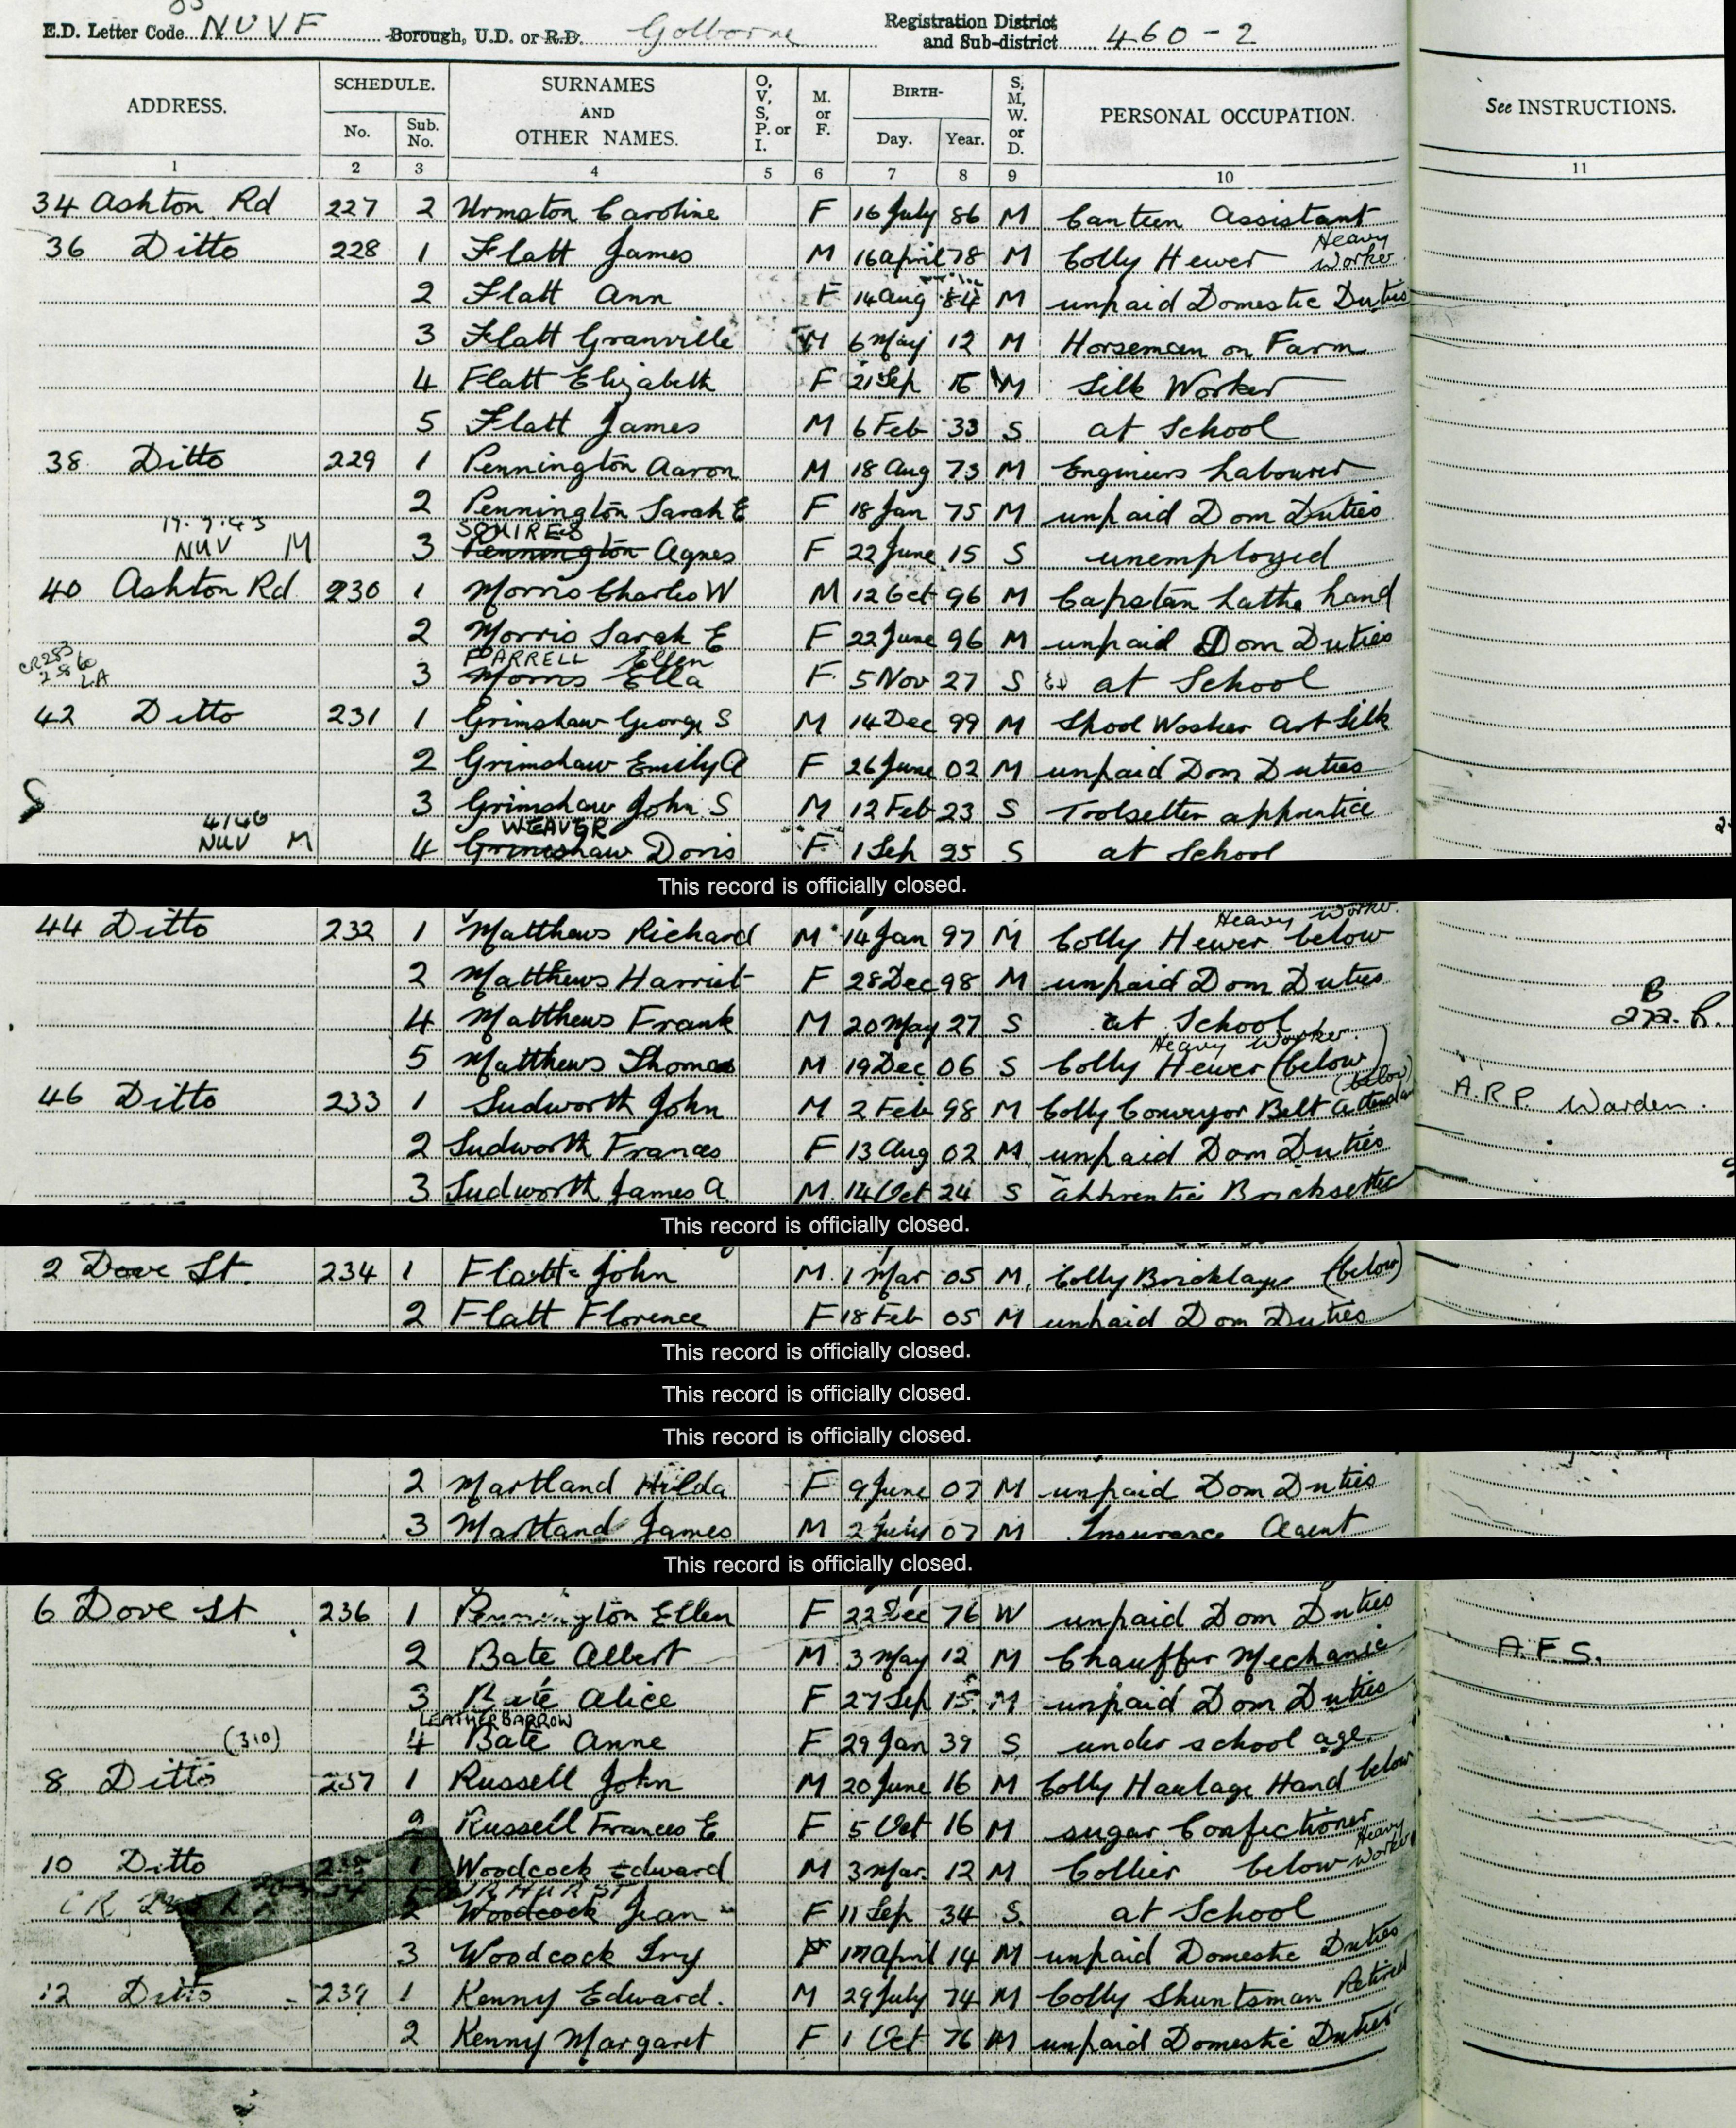 E.D. Letter Code NUVF Borough, U.D. or R.D. Golborne Registration District and Sub-district 460-2
ADDRESS. SCHEDULE. No. Sub. No. SURNAMES AND OTHER NAMES. O, V, S, P. or I. M. or F. BIRTH- Day. Year. S, M, W. or D. PERSONAL OCCUPATION. See INSTRUCTIONS.
1 2 3 4 5 6 7 8 9 10 11
34 Ashton Rd 227 2 Urmston Caroline F 16 July 86 M Canteen Assistant
36 Ditto 228 1 Flatt James M 16 April 78 M Colly Hewer Heavy Worker
2 Flatt Ann F 14 Aug 84 M unpaid Domestic Duties
3 Flatt Granville M 6 May 12 M Horseman on Farm
4 Flatt Elizabeth F 21 Sep 15 M Silk Worker
5 Flatt James M 6 Feb 33 S at School
38 Ditto 229 1 Pennington Aaron M 18 Aug 73 M Engineers Labourer
2 Pennington Sarah E F 18 Jan 75 M unpaid Dom Duties
17.7.43 SQUIRES
NUV M 3 Pennington Agnes F 22 June 15 S unemployed
40 Ashton Rd 230 1 Morris Charles W M 12 Oct 96 M Capstan Lathe hand
2 Morris Sarah E F 22 June 96 M unpaid Dom Duties
CR283 FARRELL Ellen
L.A 3 Morris Ella F 5 Nov 27 S at School
42 Ditto 231 1 Grimshaw George S M 14 Dec 99 M Spool Washer Art Silk
2 Grimshaw Emily A F 26 June 02 M unpaid Dom Duties
3 Grimshaw John S M 12 Feb 23 S Toolsetter apprentice
WEAVER
NUV M 4 Grimshaw Doris F 1 Sep 25 S at School
This record is officially closed.
44 Ditto 232 1 Matthews Richard M 14 Jan 97 M Colly Hewer below Heavy Worker
2 Matthews Harriet F 28 Dec 98 M unpaid Dom Duties
4 Matthews Frank M 20 May 27 S at School
5 Matthews Thomas M 19 Dec 06 S Colly Hewer (below) Heavy Worker
46 Ditto 233 1 Sudworth John M 2 Feb 98 M Colly Conveyor Belt Attendant (below) A.R.P. Warden.
2 Sudworth Frances F 13 Aug 02 M unpaid Dom Duties
3 Sudworth James A M 14 Oct 24 S apprentice Bricksetter
This record is officially closed.
2 Dove St. 234 1 Flatt John M 1 Mar 05 M Colly Bricklayer (below)
2 Flatt Florence F 18 Feb 05 M unpaid Dom Duties
This record is officially closed.
This record is officially closed.
This record is officially closed.
2 Martland Hilda F 9 June 07 M unpaid Dom Duties
3 Martland James M 2 July 07 M Insurance Agent
This record is officially closed.
6 Dove St 236 1 Pennington Ellen F 22 Dec 76 W unpaid Dom Duties
2 Bate Albert M 3 May 12 M Chauffer Mechanic A.F.S.
3 Bate Alice F 27 Sep 15 M unpaid Dom Duties
LEATHERBARROW
(310) 4 Bate Anne F 29 Jan 39 S under school age
8 Ditto 237 1 Russell John M 20 June 16 M Colly Haulage Hand below
2 Russell Frances E F 5 Oct 16 M sugar Confectioner
10 Ditto 1 Woodcock Edward M 3 Mar. 12 M Collier below Heavy Worker
CR 2 Woodcock Jean F 11 Sep 34 S. at School
3 Woodcock Ivy F 17 April 14 M unpaid Domestic Duties
12 Ditto 239 1 Kenny Edward. M 29 July 74 M Colly Shuntsman Retired
2 Kenny Margaret F 1 Oct 76 M unpaid Domestic Duties